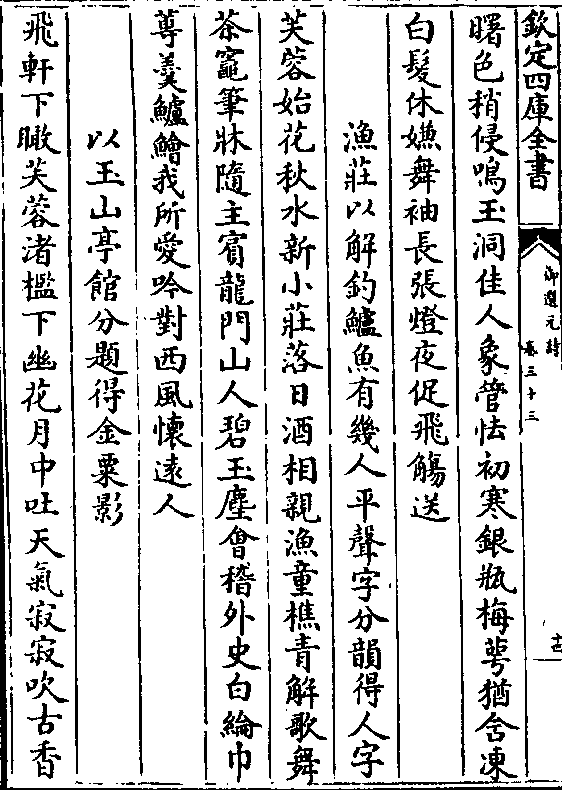 欽定四庫全書
御選元詩
卷三十三
古
曙色稍侵鳴玉洞佳人象管怯初寒銀瓶梅萼猶含凍
白髮休嫌舞袖長張燈夜促飛觴送
漁莊以解釣鱸魚有幾人平聲字分韻得人字
芙蓉始花秋水新小莊落日酒相親漁童樵青解歌舞
茶竈筆牀隨主賓龍門山人碧玉麈會稽外史白綸巾
蓴羹鱸鱠我所愛吟對西風懷遠人
以玉山亭館分題得金粟影
飛軒下瞰芙蓉渚檻下幽花月中吐天氣寂寂吹古香